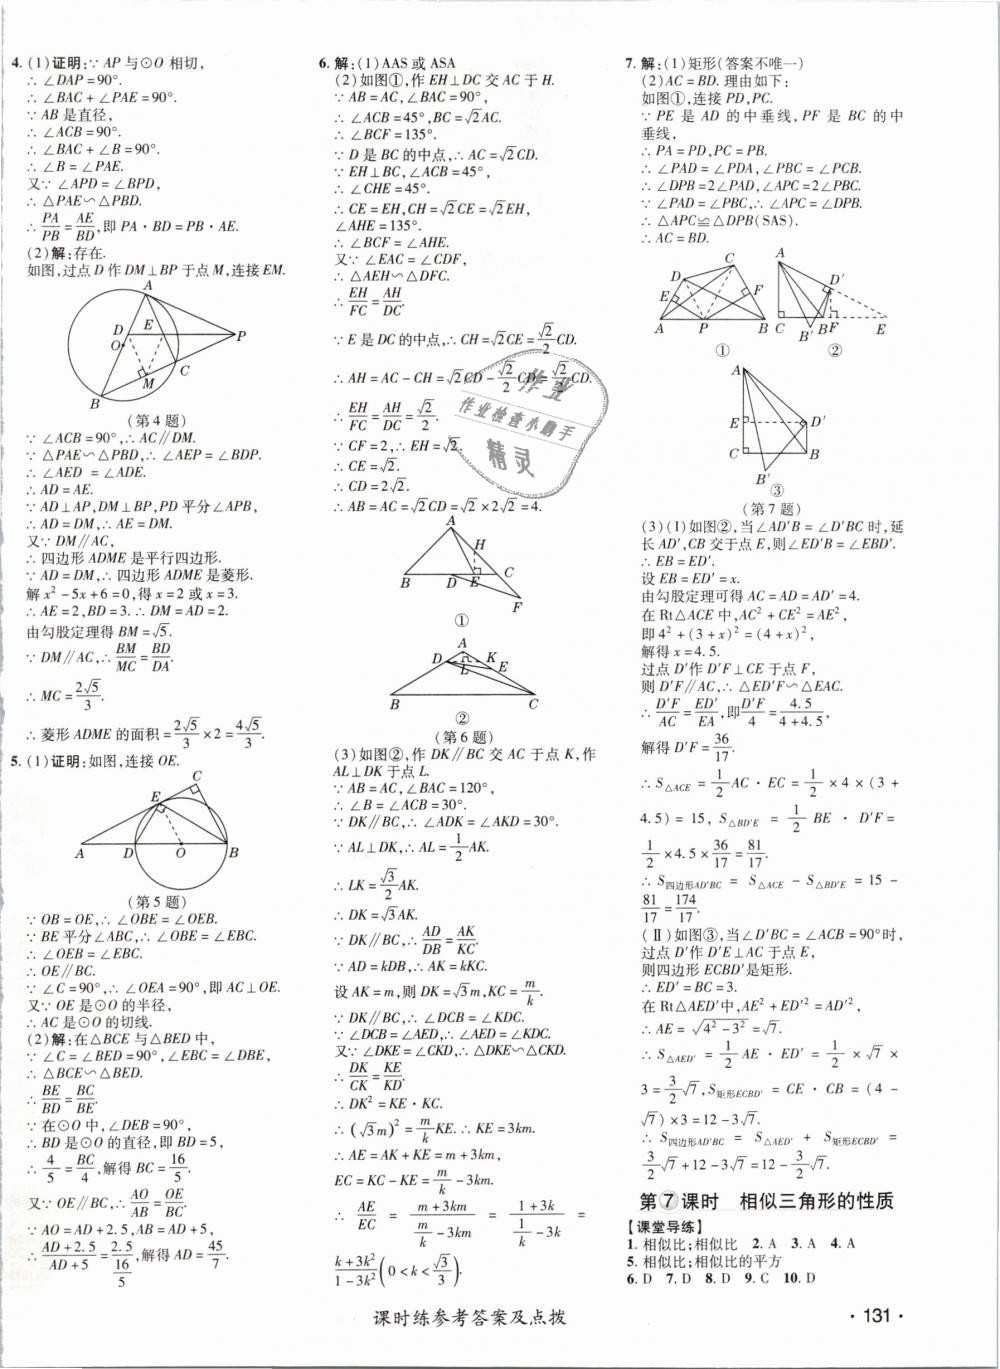 4. (1)证明:∵ AP 与⊙O 相切,
∴ ∠DAP=90°.
∴ ∠BAC+∠PAE=90°.
∵ AB 是直径,
∴ ∠ACB=90°.
∴ ∠BAC+∠B=90°.
∴ ∠B=∠PAE.
又∵ ∠APD=∠BPD,
∴ △PAE∽△PBD.
∴ PA/PB=AE/BD,即 PA·BD=PB·AE.
(2)解:存在.
如图,过点 D 作 DM⊥BP 于点 M,连接 EM.
A
D E P
O
M C
B
(第 4 题)
∵ ∠ACB=90°,∴ AC∥DM.
∵ △PAE∽△PBD,∴ ∠AEP=∠BDP.
∴ ∠AED=∠ADE.
∴ AD=AE.
∵ AD⊥AP,DM⊥BP,PD 平分∠APB,
∴ AD=DM,∴ AE=DM.
又∵ DM∥AC,
∴ 四边形 ADME 是平行四边形.
∵ AD=DM,∴ 四边形 ADME 是菱形.
解 x²-5x+6=0,得 x=2 或 x=3.
∴ AE=2,BD=3.∴ DM=AD=2.
由勾股定理得 BM=√5.
∵ DM∥AC,∴ BM/MC=BD/DA.
∴ MC=2√5/3.
∴ 菱形 ADME 的面积=2√5/3×2=4√5/3.
5. (1)证明:如图,连接 OE.
C
E
A D O B
(第 5 题)
∵ OB=OE,∴ ∠OBE=∠OEB.
∵ BE 平分∠ABC,∴ ∠OBE=∠EBC.
∴ ∠OEB=∠EBC.
∴ OE∥BC.
∵ ∠C=90°,∴ ∠OEA=90°,即 AC⊥OE.
又∵ OE 是⊙O 的半径,
∴ AC 是⊙O 的切线.
(2)解:在△BCE 与△BED 中,
∵ ∠C=∠BED=90°,∠EBC=∠DBE,
∴ △BCE∽△BED.
∴ BE/BD=BC/BE.
∵ 在⊙O 中,∠DEB=90°,
∴ BD 是⊙O 的直径,即 BD=5,
∴ 4/5=BC/4,解得 BC=16/5.
又∵ OE∥BC,∴ AO/AB=OE/BC.
∵ AO=AD+2.5,AB=AD+5,
∴ (AD+2.5)/(AD+5)=2.5/(16/5),解得 AD=45/7.
6. 解:(1)AAS 或 ASA
(2)如图①,作 EH⊥DC 交 AC 于 H.
∵ AB=AC,∠BAC=90°,
∴ ∠ACB=45°,BC=√2AC.
∴ ∠BCF=135°.
∵ D 是 BC 的中点,∴ AC=√2CD.
∵ EH⊥BC,∠ACB=45°,
∴ ∠CHE=45°.
∴ CE=EH,CH=√2CE=√2EH,
∠AHE=135°.
∴ ∠BCF=∠AHE.
又∵ ∠EAC=∠CDF,
∴ △AEH∽△DFC.
∴ EH/FC=AH/DC.
∵ E 是 DC 的中点,∴ CH=√2CE=√2/2CD.
∴ AH=AC-CH=√2CD-√2/2CD=√2/2CD.
∴ EH/FC=AH/DC=√2/2.
∵ CF=2,∴ EH=√2.
∴ CE=√2.
∴ CD=2√2.
∴ AB=AC=√2CD=√2×2√2=4.
作业
作业检查小助手
精灵
A
H
B D E C
F
①
A
D K
L E
B C
②
(第 6 题)
(3)如图②,作 DK∥BC 交 AC 于点 K,作
AL⊥DK 于点 L.
∵ AB=AC,∠BAC=120°,
∴ ∠B=∠ACB=30°.
∵ DK∥BC,∴ ∠ADK=∠AKD=30°.
∵ AL⊥DK,∴ AL=1/2AK.
∴ LK=√3/2AK.
∴ DK=√3AK.
∵ DK∥BC,∴ AD/DB=AK/KC.
∵ AD=kDB,∴ AK=kKC.
设 AK=m,则 DK=√3m,KC=m/k.
∵ DK∥BC,∴ ∠DCB=∠KDC.
∵ ∠DCB=∠AED,∴ ∠AED=∠KDC.
又∵ ∠DKE=∠CKD,∴ △DKE∽△CKD.
∴ DK/CK=KE/KD.
∴ DK²=KE·KC.
∴ (√3m)²=m/kKE.∴ KE=3km.
∴ AE=AK+KE=m+3km,
EC=KC-KE=m/k-3km.
∴ AE/EC=(m+3km)/(m/k-3km)=(1+3k)/(1/k-3k)=
(k+3k²)/(1-3k²)(0<k<√3/3).
7. 解:(1)矩形(答案不唯一)
(2)AC=BD. 理由如下:
如图①,连接 PD,PC.
∵ PE 是 AD 的中垂线,PF 是 BC 的中
垂线,
∴ PA=PD,PC=PB.
∴ ∠PAD=∠PDA,∠PBC=∠PCB.
∴ ∠DPB=2∠PAD,∠APC=2∠PBC.
∵ ∠PAD=∠PBC,∴ ∠APC=∠DPB.
∴ △APC≌△DPB(SAS).
∴ AC=BD.
C
D
E F
A P B
①
A
D′
C B F E
B′
②
A
E D′
C B
B′
③
(第 7 题)
(3)(Ⅰ)如图②,当∠AD′B=∠D′BC 时,延
长 AD′,CB 交于点 E,则∠ED′B=∠EBD′.
∴ EB=ED′.
设 EB=ED′=x.
由勾股定理可得 AC=AD=AD′=4.
在 Rt△ACE 中,AC²+CE²=AE²,
即 4²+(3+x)²=(4+x)²,
解得 x=4.5.
过点 D′作 D′F⊥CE 于点 F,
则 D′F∥AC,∴ △ED′F∽△EAC.
∴ D′F/AC=ED′/EA,即D′F/4=4.5/(4+4.5),
解得 D′F=36/17.
∴ S△ACE=1/2AC·EC=1/2×4×(3+
4.5)=15, S△BD′E=1/2 BE·D′F=
1/2×4.5×36/17=81/17.
∴ S四边形AD′BC=S△ACE-S△BD′E=15-
81/17=174/17.
(Ⅱ)如图③,当∠D′BC=∠ACB=90°时,
过点 D′作 D′E⊥AC 于点 E,
则四边形 ECBD′是矩形.
∴ ED′=BC=3.
在 Rt△AED′中,AE²+ED′²=AD′²,
∴ AE=√(4²-3²)=√7.
∴ S△AED′=1/2AE·ED′=1/2×√7×
3=3/2√7,S矩形ECBD′=CE·CB=(4-
√7)×3=12-3√7.
∴ S四边形AD′BC=S△AED′+S矩形ECBD′=
3/2√7+12-3√7=12-3/2√7.
第 7 课时 相似三角形的性质
【课堂导练】
1. 相似比;相似比 2. A 3. A 4. A
5. 相似比;相似比的平方
6. D 7. D 8. D 9. C 10. D
课时练参考答案及点拨
·131·